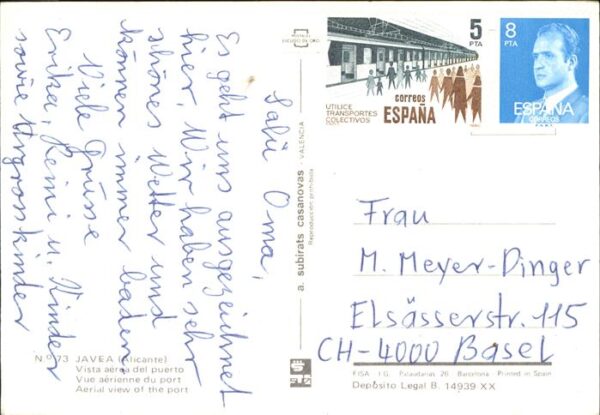 Salü Oma,
Es geht uns ausgezeichnet
hier. Wir haben sehr
schönes Wetter und
können immer baden.
Viele Grüsse
Erika, Heini u. Kinder
sowie Urgrosskinder
Nº 73 JAVEA (Alicante)
Vista aérea del puerto
Vue aérienne du port
Aerial view of the port
a. subirats casanovas - VALENCIA
Reproducción prohibida
5
PTA
UTILICE
TRANSPORTES
COLECTIVOS
correos
ESPAÑA
8
PTA
ESPAÑA
CORREOS
Frau
M. Meyer-Dinger
Elsässerstr. 115
CH-4000 Basel
FISA - I.G. Palaudarias, 26 - Barcelona - Printed in Spain
Depósito Legal B. 14939 XX